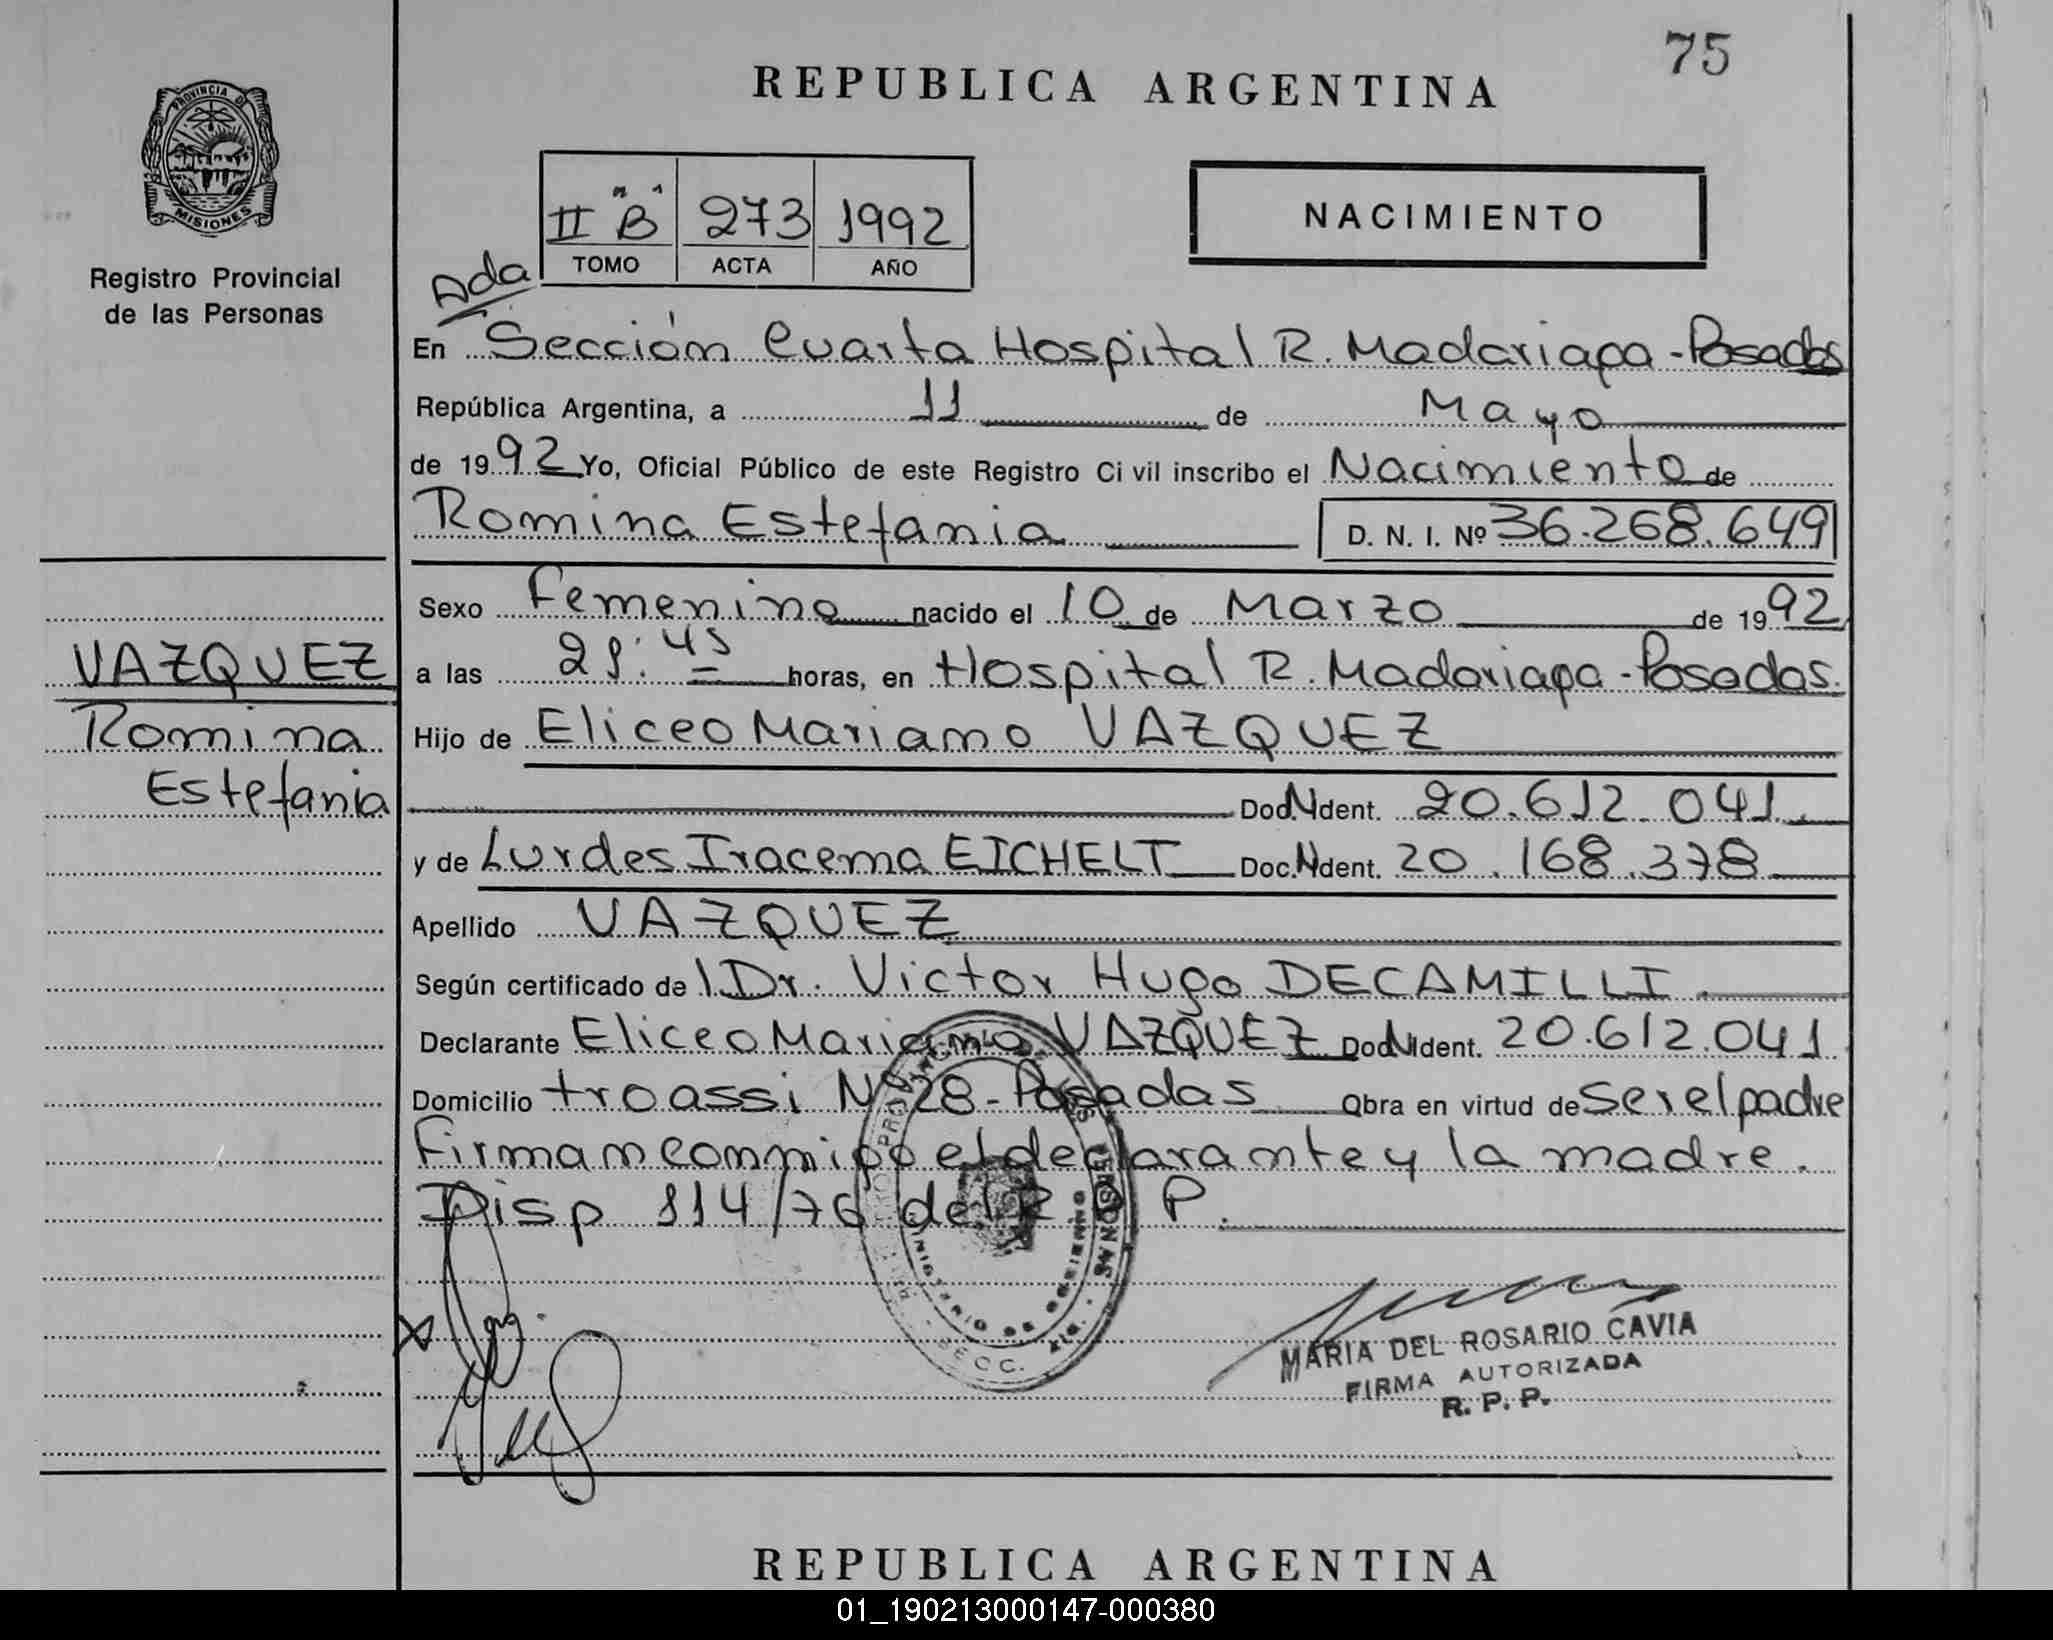 75
REPUBLICA ARGENTINA
PROVINCIA DE
MISIONES
Registro Provincial
de las Personas
II "B" 273 1992
TOMO ACTA AÑO
NACIMIENTO
Ada
En Sección Cuarta Hospital R. Madariaga - Posadas
República Argentina, a 11 de Mayo
de 1992 Yo, Oficial Público de este Registro Civil inscribo el Nacimiento de
Romina Estefania D. N. I. Nº 36.268.649
Sexo Femenino nacido el 10 de Marzo de 1992
a las 21:45 horas, en Hospital R. Madariaga - Posadas.
Hijo de Eliceo Mariano VAZQUEZ
Doc. Ident. 20.612.041
y de Lurdes Iracema EICHELT Doc. Ident. 20.168.378
Apellido VAZQUEZ
Según certificado de l Dr. Victor Hugo DECAMILLI
Declarante Eliceo Mariano VAZQUEZ Doc. Ident. 20.612.041
Domicilio troassi Nº 28 - Posadas Obra en virtud de ser el padre
Firman conmigo el declarante y la madre.
Disp 114/76 del R P P.
VAZQUEZ
Romina
Estefania
MARIA DEL ROSARIO CAVIA
FIRMA AUTORIZADA
R. P. P.
REPUBLICA ARGENTINA
01_190213000147-000380